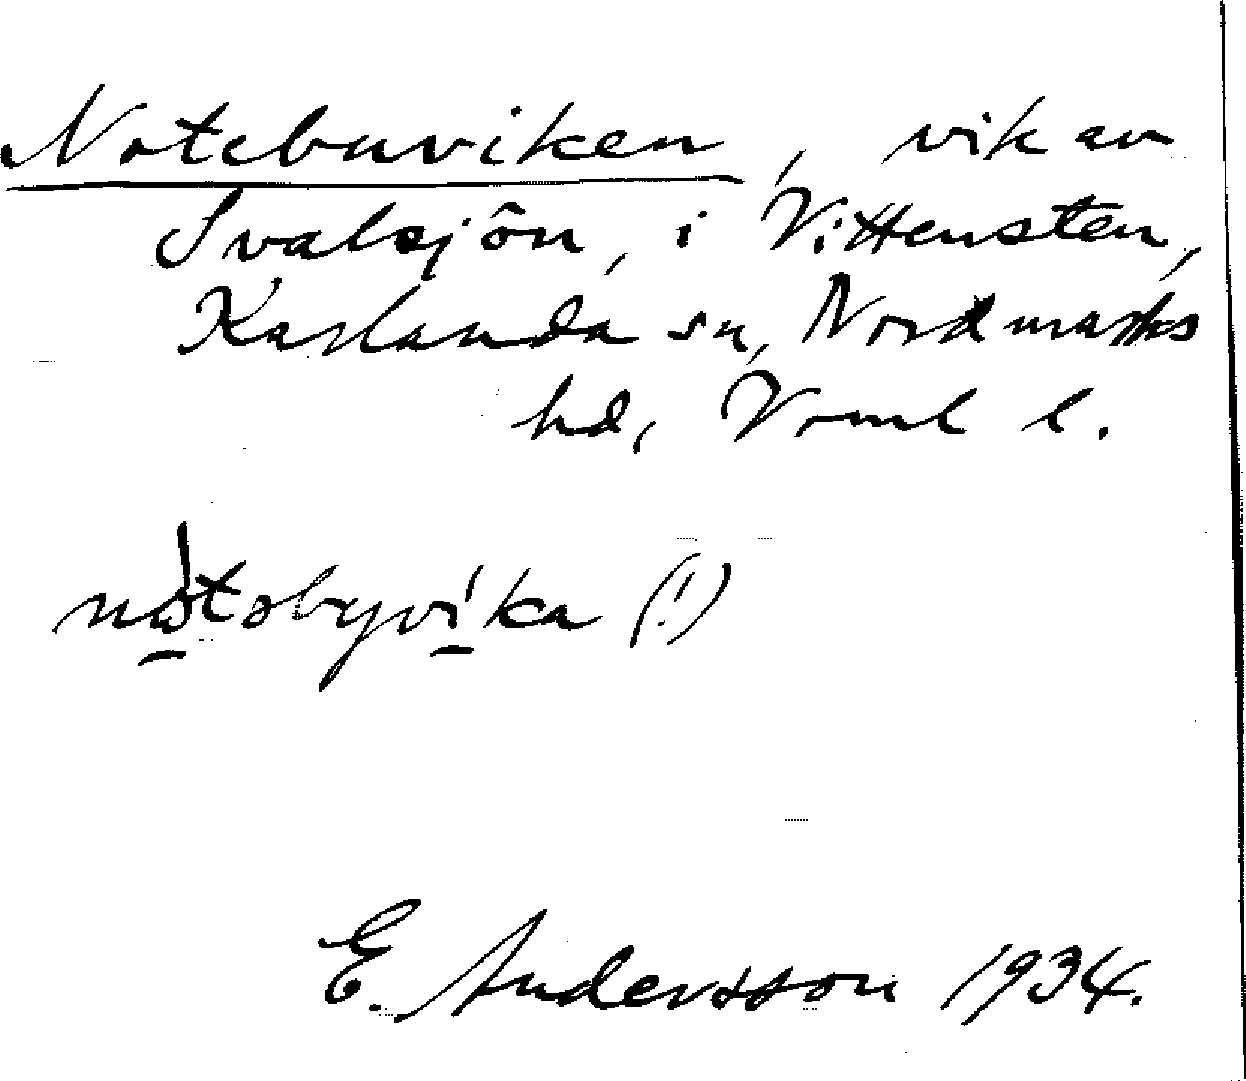 Notebuviken, vik av
Svalsjön, i Vittensten,
Karlanda sn, Nordmarks
hd, Vrml l.
(!)
E. Andersson 1934.